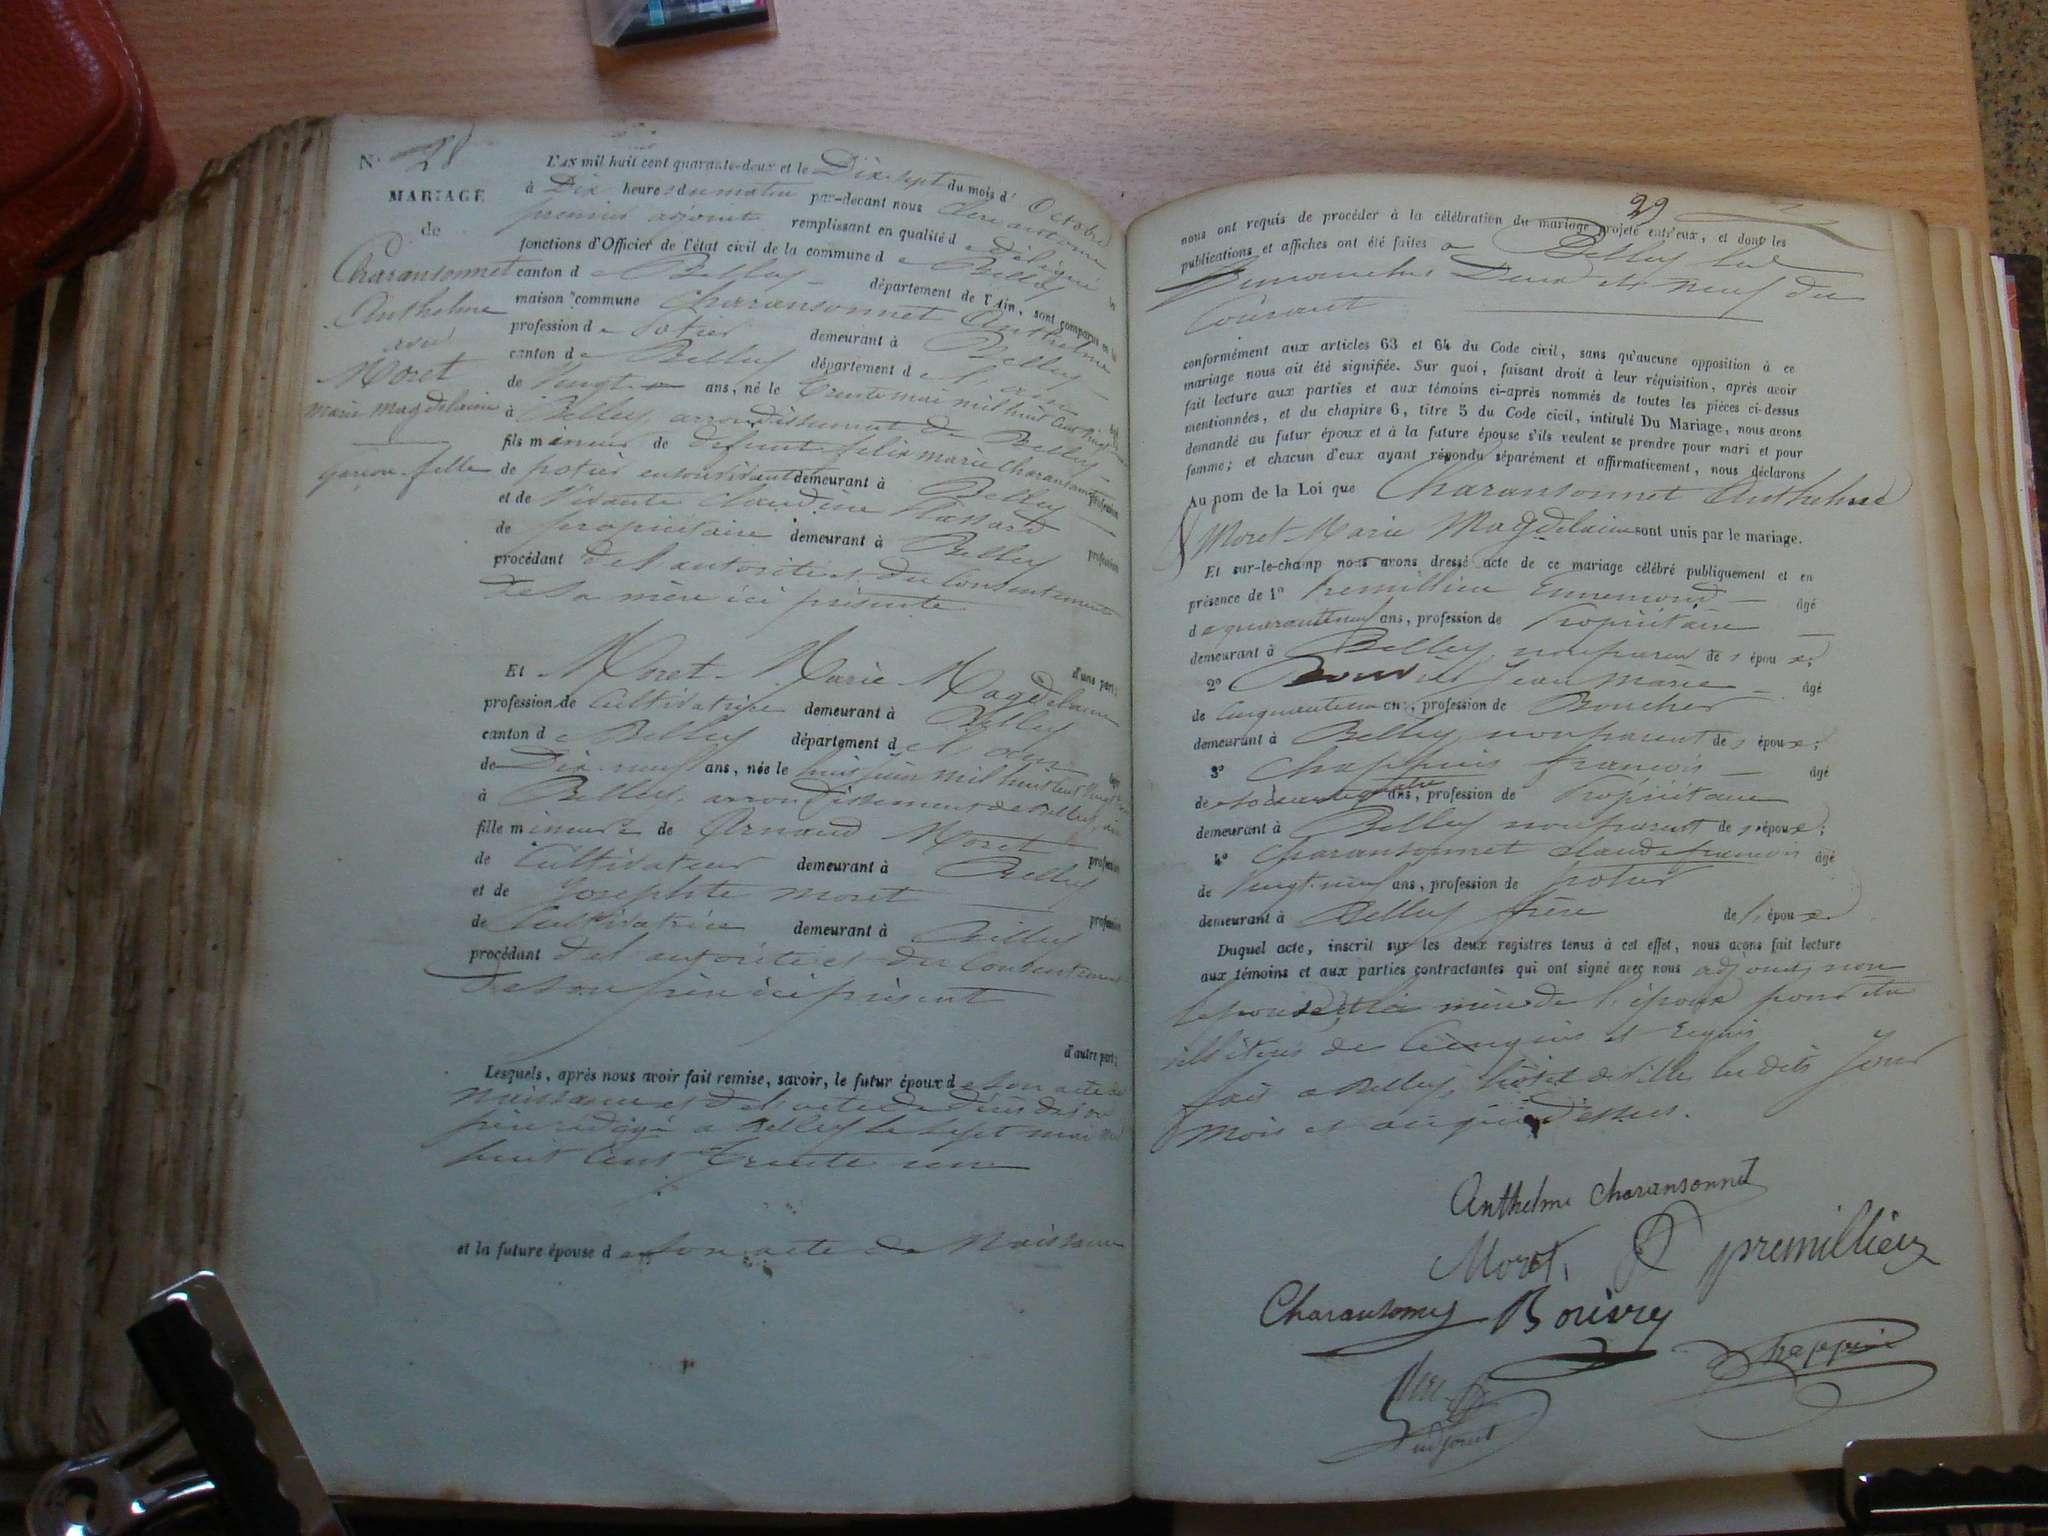 N° 28
MARIAGE
de
Charansonnet
Anthelme
avec
Moret
marie magdelaine
garçon - fille
L'AN mil huit cent quarante-deux et le Dix sept du mois d'Octobre
à Dix heures du matin par-devant nous
premier adjoint remplissant en qualité de délégué les
fonctions d'Officier de l'état civil de la commune de Belley
canton de Belley département de l'Ain, sont comparus en la
maison commune Charansonnet Anthelme
profession de potier demeurant à Belley
canton de Belley département de l'ain
de Vingt ans, né le trente mai mil huit cent vingt
à Belley arrondissement de Belley
fils mineur de defunt felix marie Charansonnet profession
de potier en son vivant demeurant à Belley
et de Vivante claudine profession
de propriétaire demeurant à Belley
procédant de l'autorité et du Consentement
de Sa mère ici présente
d'une part;
Et Moret Marie Magdelaine
profession de Cultivatrice demeurant à Belley
canton de Belley département de l'ain âgée
de Dix-neuf ans, née le huit juin mil huit cent vingt
à Belley, arrondissement de Belley, ain
fille mineure de Arnaud Moret profession
de Cultivateur demeurant à Belley
et de Josephte moret profession
de Cultivatrice demeurant à Belley
procédant de l'autorité et du Consentement
de Son père ici présent
d'autre part;
Lesquels, après nous avoir fait remise, savoir, le futur époux de Son acte de
Naissance et de l'acte de décès de son
père rédigé a Belley le sept mai mil
huit cent trente un
et la future épouse de Son acte de Naissance
29
nous ont requis de procéder à la célébration du mariage projeté entr'eux, et dont les
publications et affiches ont été faites a Belley les
Dimanches Deux et neuf du
Courant
conformément aux articles 63 et 64 du Code civil, sans qu'aucune opposition à ce
mariage nous ait été signifiée. Sur quoi, faisant droit à leur réquisition, après avoir
fait lecture aux parties et aux témoins ci-après nommés de toutes les pièces ci-dessus
mentionnées, et du chapitre 6, titre 5 du Code civil, intitulé Du Mariage, nous avons
demandé au futur époux et à la future épouse s'ils veulent se prendre pour mari et pour
femme; et chacun d'eux ayant répondu séparément et affirmativement, nous déclarons
Au nom de la Loi que Charansonnet Anthelme
& Moret Marie Magdelaine sont unis par le mariage.
Et sur-le-champ nous avons dressé acte de ce mariage célébré publiquement et en
présence de 1° Premillieu Ennemond âgé
de quarante neuf ans, profession de Propriétaire
demeurant à Belley non parent des époux;
2° Jean Marie âgé
de Cinquante ans, profession de Boucher
demeurant à Belley, non parent des époux;
3° Chappuis francois âgé
de soixante quatre ans, profession de Propriétaire
demeurant à Belley non parent des époux;
4° Charansonnet claude francois âgé
de Vingt-neuf ans, profession de potier
demeurant à Belley frère de l'époux
Duquel acte, inscrit sur les deux registres tenus à cet effet, nous avons fait lecture
aux témoins et aux parties contractantes qui ont signé avec nous adjoint, non
l'épouse et la mère de l'époux pour etre
illitérés de Ce enquis et requis
fait a Belley, hôtel de ville les dits Jour
Mois et an que Dessus.
Anthelme Charansonnet
Moret premillieu
Charansonnet Bouvry
Chappuis
adjoint